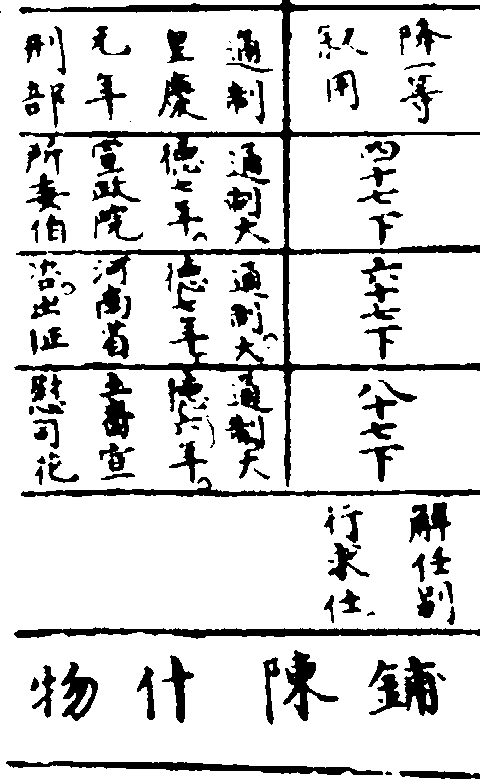 降一等
叙用
通制
皇慶
元年
刑部
四十七下
通制大
德七年
宣政院
所委伯
六十七下
通制大
德七年
河南省
咨出征
八十七下
通制大
德六年
宣
慰司花
解任别
行求仕
鋪陳什物